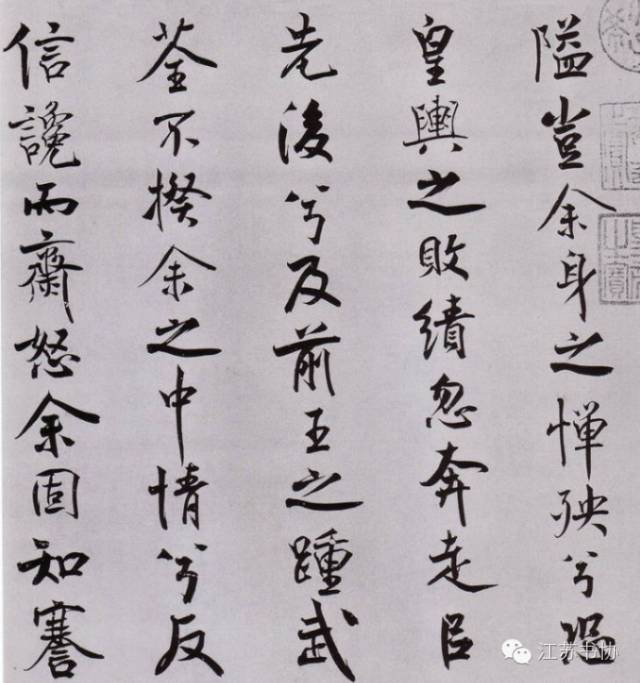 隘豈余身之惮殃兮恐
皇輿之敗績忽奔走㠯
先後兮及前王之踵武
荃不揆余之中情兮反
信讒而齌怒余固知謇
江苏书协